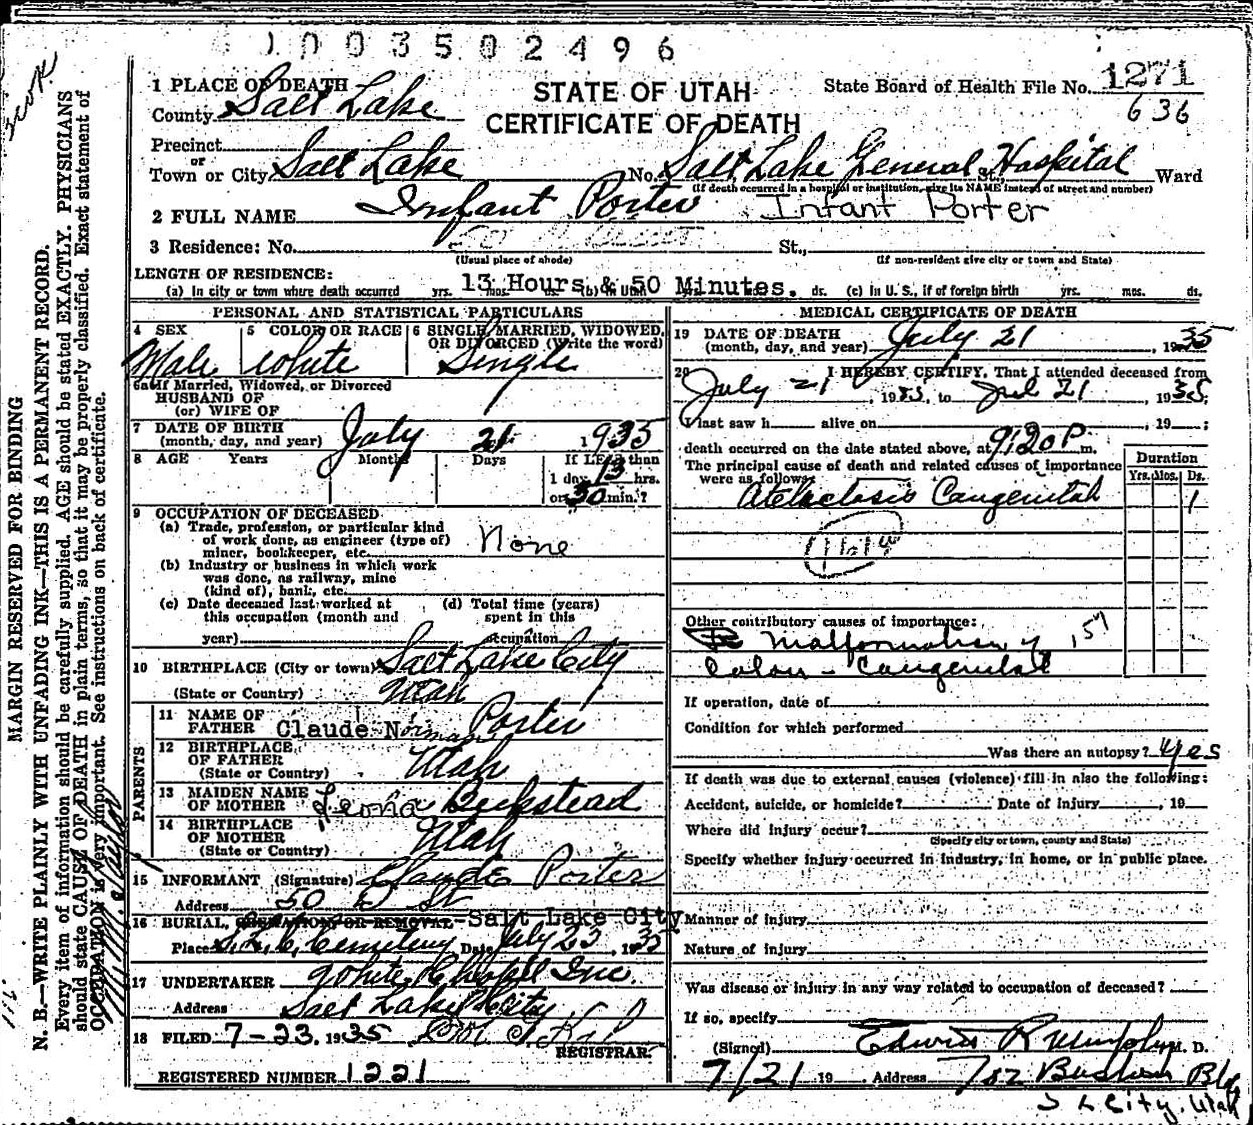 1003502496
1 PLACE OF DEATH
STATE OF UTAH
CERTIFICATE OF DEATH
State Board of Health File No. 1271
636
County Salt Lake
Precinct
or
Town or City Salt Lake No. Salt Lake General Hospital St., Ward
(If death occurred in a hospital or institution, give its NAME instead of street and number)
2 FULL NAME Infant Porter Infant Porter
3 Residence: No. St.,
(Usual place of abode) (If non-resident give city or town and State)
LENGTH OF RESIDENCE:
(a) In city or town where death occurred yrs. mos. ds. (b) in Utah ds. (c) In U. S., if of foreign birth yrs. mos. ds.
13 Hours & 50 Minutes.
PERSONAL AND STATISTICAL PARTICULARS
4 SEX Male
5 COLOR OR RACE white
6 SINGLE, MARRIED, WIDOWED, OR DIVORCED (Write the word) Single
6a If Married, Widowed, or Divorced
HUSBAND OF
(or) WIFE OF
7 DATE OF BIRTH
(month, day, and year) July 21 1935
8 AGE Years Months Days If LESS than
1 day 13 hrs.
or 30 min.?
9 OCCUPATION OF DECEASED
(a) Trade, profession, or particular kind
of work done, as engineer (type of)
miner, bookkeeper, etc. None
(b) Industry or business in which work
was done, as railway, mine
(kind of), bank, etc.
(c) Date deceased last worked at
this occupation (month and
year)
(d) Total time (years)
spent in this
occupation
10 BIRTHPLACE (City or town) Salt Lake City
(State or Country) Utah
PARENTS
11 NAME OF
FATHER Claude Norman Porter
12 BIRTHPLACE
OF FATHER
(State or Country) Utah
13 MAIDEN NAME
OF MOTHER Leona Beckstead
14 BIRTHPLACE
OF MOTHER
(State or Country) Utah
15 INFORMANT (Signature) Claude Porter
Address 50 D St
16 BURIAL, CREMATION OR REMOVAL Salt Lake City
Place S. L. C. Cemetery Date July 23, 1935
17 UNDERTAKER White Chapel Inc.
Address Salt Lake City
18 FILED 7-23, 1935
REGISTRAR.
REGISTERED NUMBER 1221
MEDICAL CERTIFICATE OF DEATH
19 DATE OF DEATH
(month, day, and year) July 21, 1935
20 I HEREBY CERTIFY, That I attended deceased from
July 21, 1935, to Jul 21, 1935;
I last saw h alive on , 19 ;
death occurred on the date stated above, at 9:20 P m.
The principal cause of death and related causes of importance
were as follows:
Duration
Yrs. Mos. Ds.
Atelectasis Congenital 1
Other contributory causes of importance:
Malformation of 157
Colon - Congenital
If operation, date of
Condition for which performed
Was there an autopsy? yes
If death was due to external causes (violence) fill in also the following:
Accident, suicide, or homicide? Date of injury , 19
Where did injury occur?
(Specify city or town, county and State)
Specify whether injury occurred in industry, in home, or in public place.
Manner of injury
Nature of injury
Was disease or injury in any way related to occupation of deceased?
If so, specify
(Signed) Edwin R Murphy M. D.
7/21 19 Address 702 Boston Bldg
S L City, Utah
MARGIN RESERVED FOR BINDING
N. B.—WRITE PLAINLY WITH UNFADING INK—THIS IS A PERMANENT RECORD.
Every item of information should be carefully supplied. AGE should be stated EXACTLY. PHYSICIANS
should state CAUSE OF DEATH in plain terms, so that it may be properly classified. Exact statement of
OCCUPATION is very important. See instructions on back of certificate.